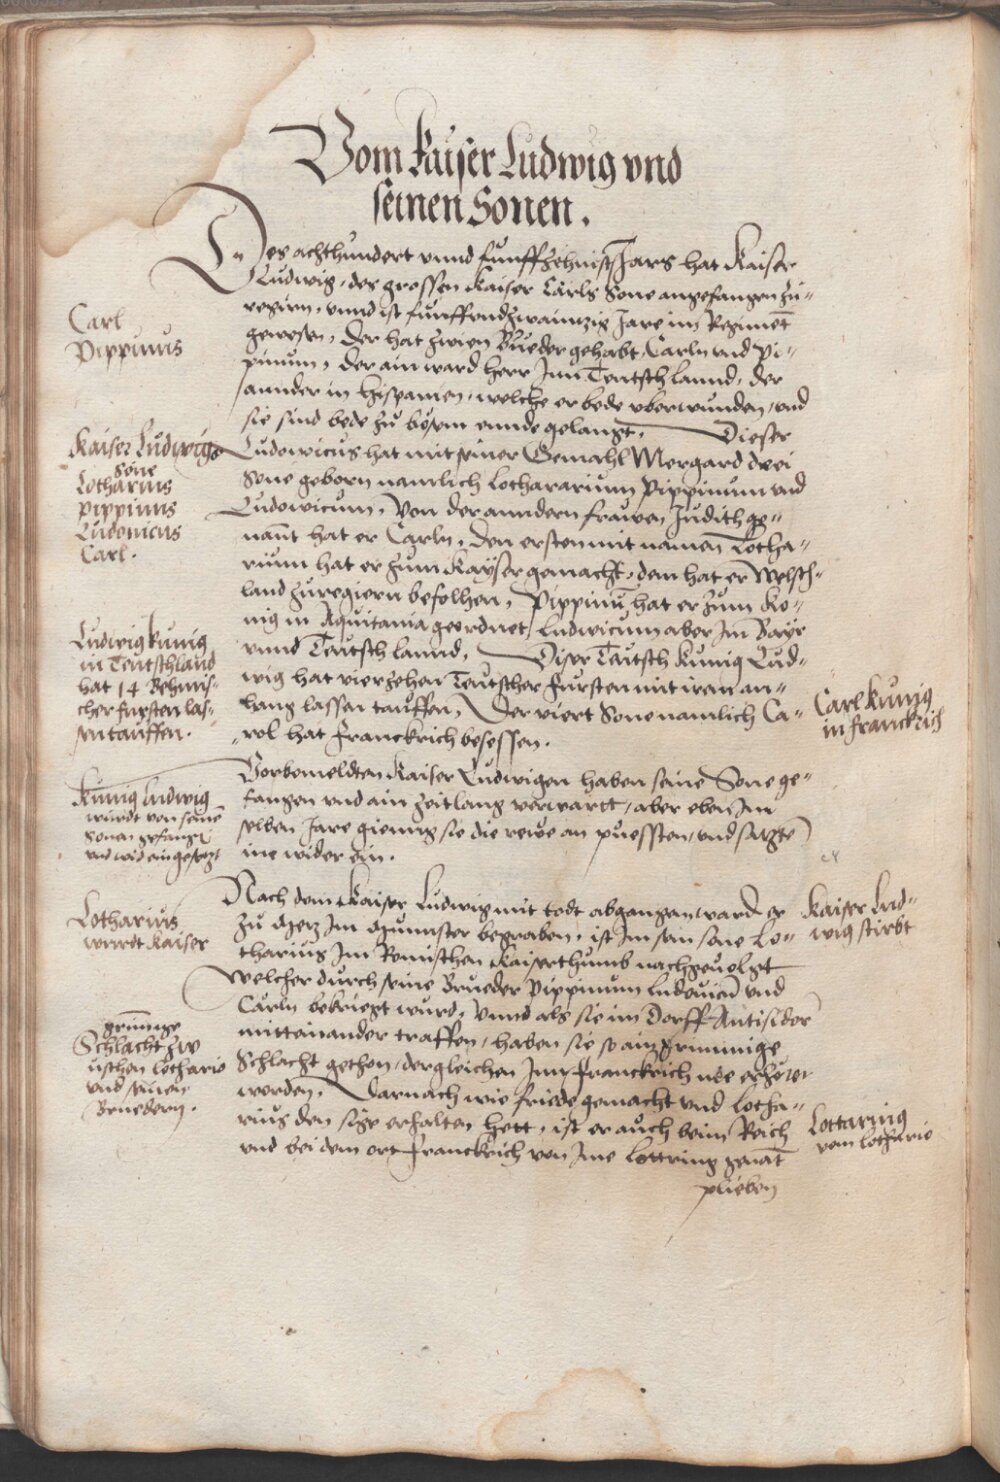 Vom kaiser Ludwig vnd
seinen Sonen.
Des achthundert vnnd funffzehnist Jars hat Kaiser
Ludwig, des grossen Kaiser Carls Sone angefangen zu=
regirn, vnnd ist funffvndzwaintzig Jare im Regiment
gewesen, Der hat zwen Brueder gehabt, Carln vnd Pi=
pinum, der ain ward herr Jnn Teutschlannd, der
annder in Hispanien, welche er bede vberwunden, vnd
sie sind bede zu bösem ennde gelangt. Dieser
Ludowicus hat mit seiner Gemahl Mergard drei
Sone geborn namlich Lothararium Pippinum vnd
Ludowicum, Von der anndern frawen Judith ge=
nant hat er Carln, Den ersten mit namen Lotha=
rium hat er zum Kayser gemacht, dem hat er Welsch=
land zuregiern befolhen, Pippinū hat er zum Ko=
nig in Aquitania geordnet, Ludwicum aber Jm Bayr
vnnd Teutschlannd, Diser Teutsch Kunig Lud=
wig hat vierzehen Teutscher fursten mit iren an=
hang lassen tauffen, Der viert Sone namlich Ca=
rol hat Franckrich besessen.
Carl
Pippinus
Kaiser Ludwigs
Söne
Lotharius
Pippinus
Ludouicus
Carl.
Ludwig kunig
in Teutschland
hat 14 Behmis=
cher fursten las=
sen tauffen.
Carl kunig
in franckrich
Vorbemeldten Kaiser Ludwigen haben seine Sone ge=
fangen vnd ain zeitlang verwartt, aber eben Jm
selben Jare gieng sie die rewe an vnd satzten
ine wider ein.
Kunig Ludwig
wurdt von seinē
Sonen gefangē
vnd wid eingesetzt
Nach dem Kaiser Ludwig mit todt abgangen ward er
zu Metz Jm Munster begraben, ist Jm sein sone Lo=
tharius Jm Romischen Kaiserthumb nachgeuolgt
Welcher durch seine Brueder Pippinum Ludouicū vnd
Carln bekriegt wurd, Vnnd als sie im Dorff Antisidor
mitteinander traffen, haben sie so ain grimmige
Schlacht gethon, dergleichen Jnn Franckrich nie erhört
worden, Darnach wie friede gemacht vnd Lotha=
rius den sige erhalten hett, ist er auch beim Reich
vnd bei dem ort Franckrich von Jme Lottring genāt
plieben
Lotharius
wurdt Kaiser
Kaiser Lud=
wig stirbt
grimmige
Schlacht zw
ischen Lothario
vnd seinen
Bruedern.
Lottaring
vom Lothario